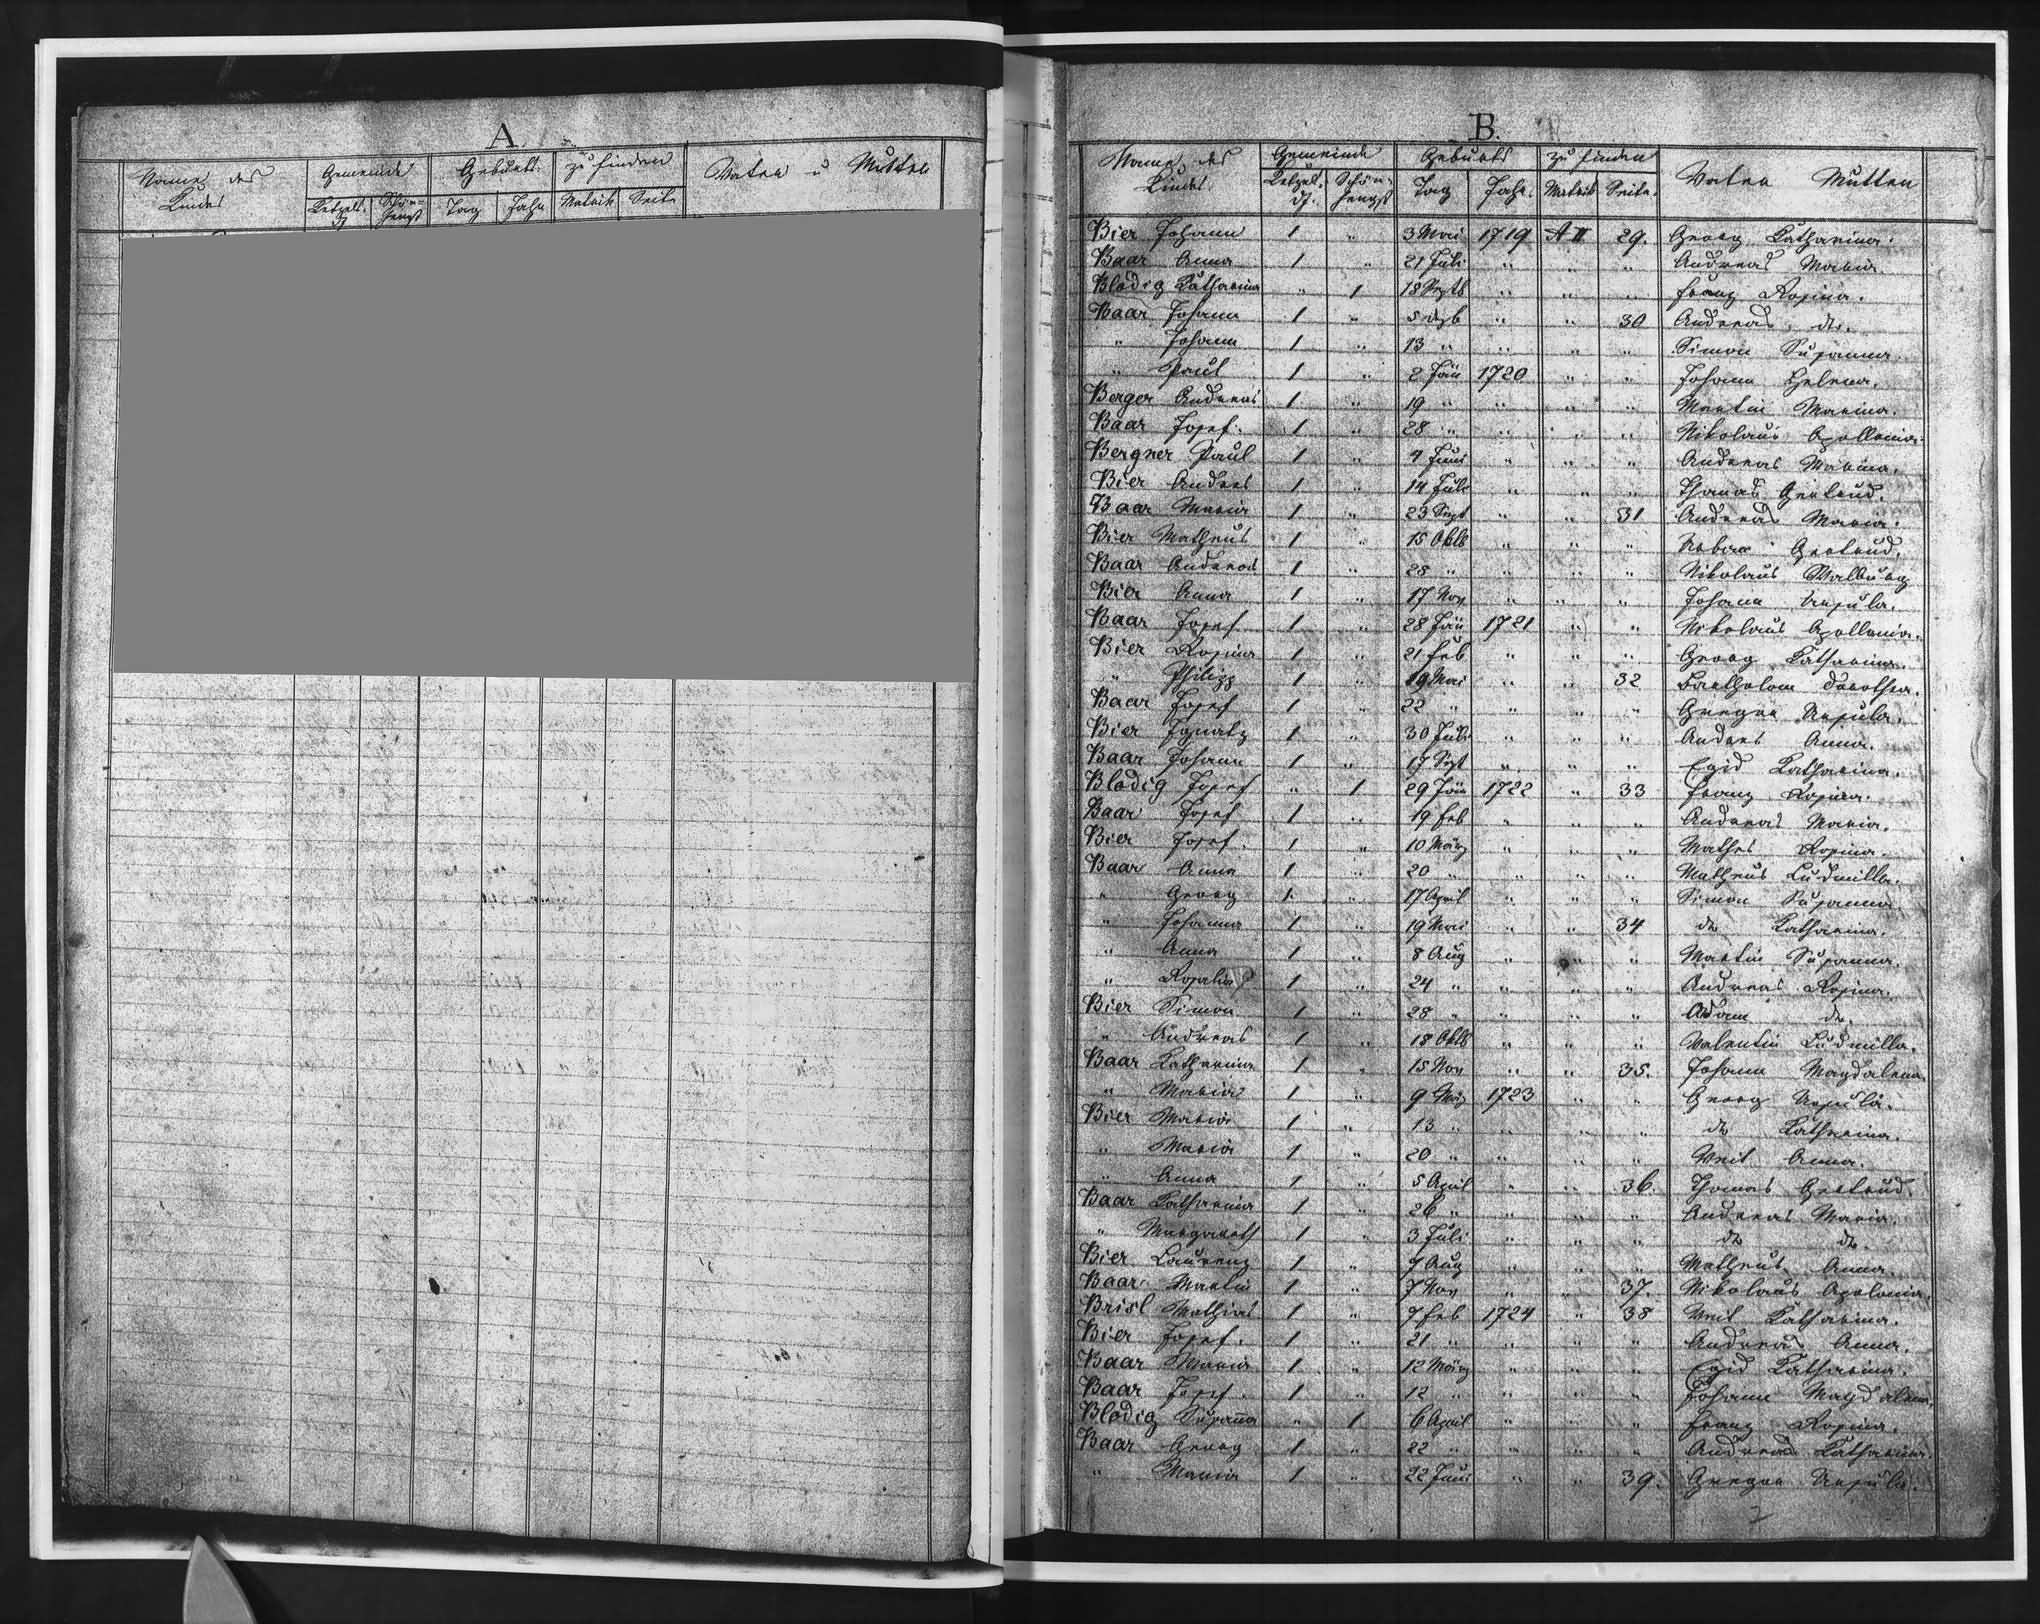 A.
Name des Kindes Gemeinde Geburts- zu finden Vater u Mutter
Ketzelsdf. Schönhengst Tag Jahr Matrik Seite
B.
Name des Kindes. Gemeinde Geburts zu finden Vater Mutter
Ketzelsdf. Schönhengst Tag Jahr. Matrik Seite.
Bier Johann 1 " 3 Mai 1719 A II 29. Georg Katharina.
Baar Anna 1 " 21 Juli " " " Andreas Maria
Blodig Katharina " 1 18 Septb " " " Franz Rosina.
Baar Johann 1 " 5 dzb " " 30 Andreas dto.
" Johann 1 " 13 " " " " Simon Susanna.
" Paul 1 " 2 Jän 1720 " " Johann Helena.
Berger Andreas 1 " 19 " " " " Martin Marina.
Baar Josef. 1 " 28 " " " " Nikolaus Apollonia.
Bergner Paul 1 " 4 Juni " " " Andreas Marina.
Bier Andres 1 " 14 Juli " " " Thomas Gertrud.
Baar Maria 1 " 23 Sept " " 31 Andreas Maria.
Bier Matheus 1 " 15 Oktb " " " Gertrud.
Baar Andreas 1 " 28 " " " " Nikolaus Walburg
Bier Anna 1 " 17 Nov " " " Johann Ursula.
Baar Josef 1 " 28 Jän 1721 " " Nikolaus Apollonia.
Bier Rosina 1 " 21 Feb " " " Georg Katharina.
" Philipp 1 " 19 Mai " " 32 Bartholom Dorothea.
Baar Josef 1 " 22 " " " " Gregor Ursula.
Bier Ignatz 1 " 30 Juli " " " Andres Anna.
Baar Johann 1 " 17 Sept " " " Egid Katharina.
Blodig Josef " 1 29 Jän 1722 " 33 Franz Rosina.
Baar Josef 1 " 19 Feb " " " Andreas Maria.
Bier Josef. 1 " 10 März " " " Mathes Rosina.
Baar Anna 1 " 20 " " " " Matheus Ludmilla.
" Georg 1. " 17 April " " " Simon Susanna
" Johanna 1 " 19 Mai " " 34 dto Katharina.
" Anna 1 " 8 Aug " " " Martin Susanna.
" Rosalia 1 " 24 " " " " Andreas Rosina.
Bier Simon 1 " 28 " " " " Adam dto.
" Andreas 1 " 18 Oktb " " " Valentin Ludmilla.
Baar Katharina 1 " 15 Nov " " 35. Johann Magdalena.
" Maria 1 " 9 März 1723 " " Georg Ursula.
Bier Maria 1 " 13 " " " " dto Katharina.
" Maria 1 " 20 " " " " Veit Anna.
" Anna 1 " 5 April " " 36. Thomas Gertrud.
Baar Katharina 1 " 26 " " " " Andreas Maria.
" Margareth 1 " 3 Juli " " " dto dto.
Bier Laurenz 1 " 7 Aug " " " Matheus Anna.
Baar Martin 1 " 7 Nov " " 37. Nikolaus Apolonia.
Brisl Mathias 1 " 7 Feb 1724 " 38 Veit Katharina.
Bier Josef. 1 " 21 " " " " Andreas Anna.
Baar Maria 1 " 12 März " " " Egid Katharina.
Baar Josef. 1 " 12 " " " " Johann Magdalena.
Blodig Susanna " 1 6 April " " " Franz Rosina.
Baar Georg 1 " 22 " " " " Andreas Katharina.
" Maria 1 " 22 Juni " " 39. Gregor Ursula.
2